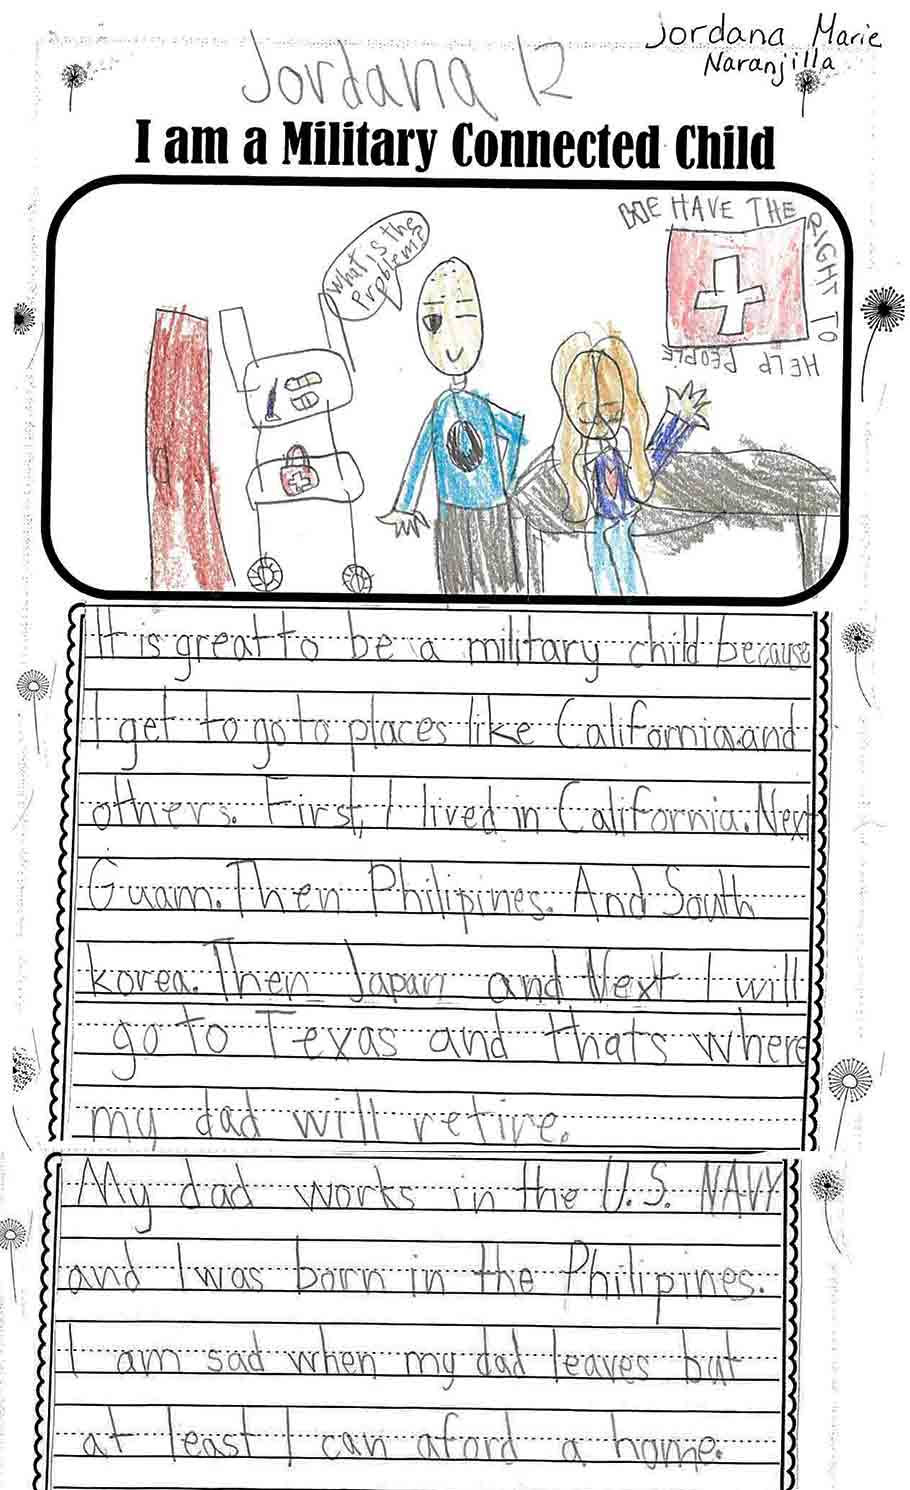 Jordana Marie
Naranjilla
Jordana 12
I am a Military Connected Child
What is the
Prpblem?
WE HAVE THE
RIGHT TO
HELP PEOPLE
It is great to be a military child because
I get to go to places like California.and
others. First, I lived in California. Next
Guam. Then Philipines. And South
korea. Then Japan and Next I will
go to Texas and thats where
my dad will retire.
My dad works in the U.S. NAVY
and I was born in the Philipines.
I am sad when my dad leaves but
at least I can aford a home.